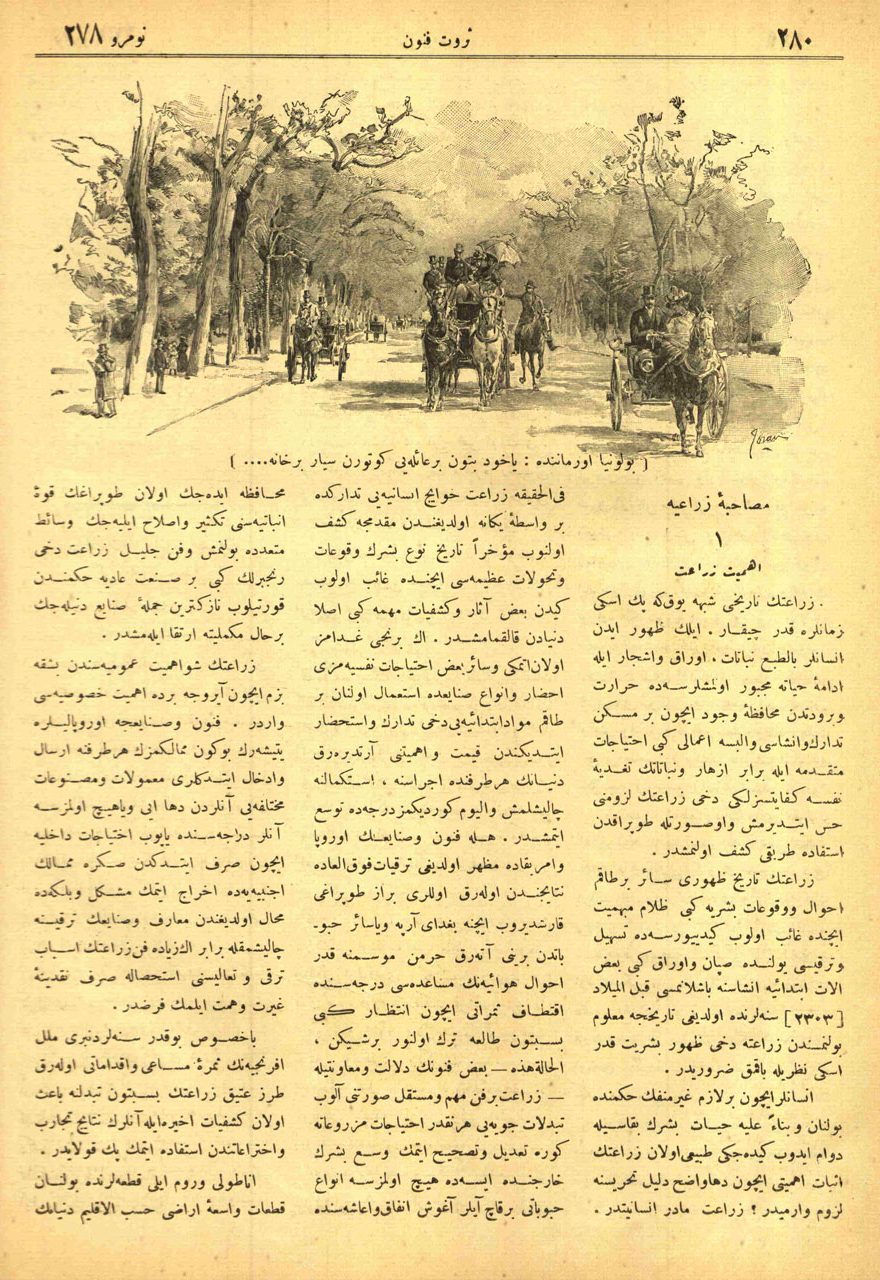 ٢٨٠
ثروت فنون
نومرو ٢٧٨
( بولونیا اورماننده : یاخود بتون بر عائله‌یی كوتورن سیار برخانه .... )
مصاحبهٔ زراعیه
١
اهمیت زراعت
. زراعتك تاریخی شبهه یوق‌كه پك اسكی
زمانلره قدر چیقار . ایلك ظهور ایدن
انسانلر بالطبع نباتات ، اوراق واشجار ایله
ادامهٔ حیاته مجبور اولمشلرسه‌ده حرارت
وبرودتدن محافظهٔ وجود ایچون بر مسكن
تدارك‌وانشاسی والبسه اعمالی كبی احتیاجات
متقدمه ایله برابر ازهار ونباتاتك تغدیهٔ
نفسه كفایتسزلكی دخی زراعتك لزومنی
حس ایتدیرمش واوصورتله طوپراقدن
استفاده طریقی كشف اولنمشدر .
زراعتك تاریخ ظهوری سائر برطاقم
احوال ووقوعات بشریه كبی ظلام مبهمیت
ایچنده غائب اولوب كیدییورسه‌ده تسهیل
وترقیسی یولنده صپان واوراق كبی بعض
الات ابتدائیه انشاسنه باشلانمسی قبل المیلاد
[٢٣٠٣] سنه‌لرنده اولدیغی تاریخجه معلوم
بولنمـندن زراعته دخی ظهور بشریت قدر
اسكی نظریله باقمق ضروریدر .
انسانلرایچون برلازم غیرمنفك حكمنده
بولنان و بناءً علیه حیات بشرك بقاسیله
دوام ایدوب كیده‌جكی طبیعی‌اولان زراعتك
اثبات اهمیتی ایچون دهاواضح دلیل تحریسنه
لزوم وارمیدر ؟ زراعت مادر انسانیتدر .
فی‌الحقیقه زراعت حوایج انسانیه‌یی تداركده
بر واسطهٔ یكانه اولدیغندن مقدمجه كشف
اولنوب مؤخراً تاریخ نوع بشرك وقوعات
وتحولات عظیمه‌سی ایچنده غائب اولوب
كیدن بعض آثار وكشفیات مهمه كبی اصلا
دنیادن قالقمامشدر . اك برنجی غدامز
اولان‌اتمكی وسائربعض احتیاجات نفسیه‌مزی
احضار وانواع صنایعده استعمال اولنان بر
طاقم موادابتدائیه‌یی‌دخی تدارك واستحضار
ایتدیكندن قیمت واهمیتنی آرتدیره‌رق
دنیانك هرطرفنده اجراسنه ، استكمالنه
چالیشلمش والیوم كوردیكمزدرجه‌ده توسع
ایتمشدر . هله فنون وصنایعك اوروپا
وامریقاده مظهر اولدیغی ترقیات فوق‌العاده
نتایجندن اوله‌رق اوللری براز طوپراغی
قارشدیروب ایچنه بغدای آرپه ویاسائر حبو-
باتدن برینی آته‌رق حرمن موسمنه قدر
احوال هوائیه‌نك مساعده‌سی درجه‌سنده
اقتطاف ثمراتی ایچون انتظار كبی
بسبتون طالعه ترك اولنور برشیكن ،
الحالة‌هذه — بعض فنونك دلالت ومعاونتیله
— زراعت‌برفن مهم ومستقل صورتنی آلوب
تبدلات جویه‌یی هرنقدر احتیاجات مزروعاته
كوره تعدیل وتصحیح ایتمك وسع بشرك
خارجنده ایسه‌ده هیچ اولمزسه انواع
حبوباتی برقاچ آیلر آغوش انفاق‌واعاشه‌سنده
محافظه ایده‌جك اولان طوپراغك قوهٔ
انباتیه‌سنی تكثیر واصلاح ایلیه‌جك وسائط
متعدده بولنمش وفن جلیل زراعت دخی
رنجبرلك كبی بر صنعت عادیه حكمندن
قورتیلوب نازكترین جملهٔ صنایع دنیله‌جك
برحال مكملیته ارتقا ایله‌مشدر .
زراعتك شواهمیت عمومیه‌سندن بشقه
بزم ایچون آیروجه برده اهمیت خصوصیه‌سی
واردر . فنون وصنایعجه اوروپالیلره
یتیشه‌رك بوكون ممالكمزك هرطرفنه ارسال
وادخال ایتدكلری معمولات ومصنوعات
مختلفه‌یی آنلردن دها ایی ویاهیچ اولمزسه
آنلر درجه‌سنده یاپوب احتیاجات داخلیه
ایچون صرف ایتدكدن صكره ممالك
اجنبیه‌یه‌ده اخراج ایتمك مشكل وبلكه‌ده
محال اولدیغندن معارف وصنایعك ترقیسنه
چالیشمقله برابر اك‌زیاده فن‌زراعتك اسباب
ترقی و تعالیسنی استحصاله صرف نقدینهٔ
غیرت وهمت ایلمك فرضدر .
باخصوص بوقدر سنه‌لردنبری ملل
افرنجیه‌نك ثمرهٔ مساعی‌واقداماتی اوله‌رق
طرز عتیق زراعتك بسبتون تبدلنه باعث
اولان كشفیات اخیره‌ایله‌آنلرك نتایج تجارب
واختراعاتندن استفاده ایتمك پك قولایدر .
اناطولی وروم ایلی قطعه‌لرنده بولنان
قطعات واسعهٔ اراضی حسب الاقلیم دنیانك